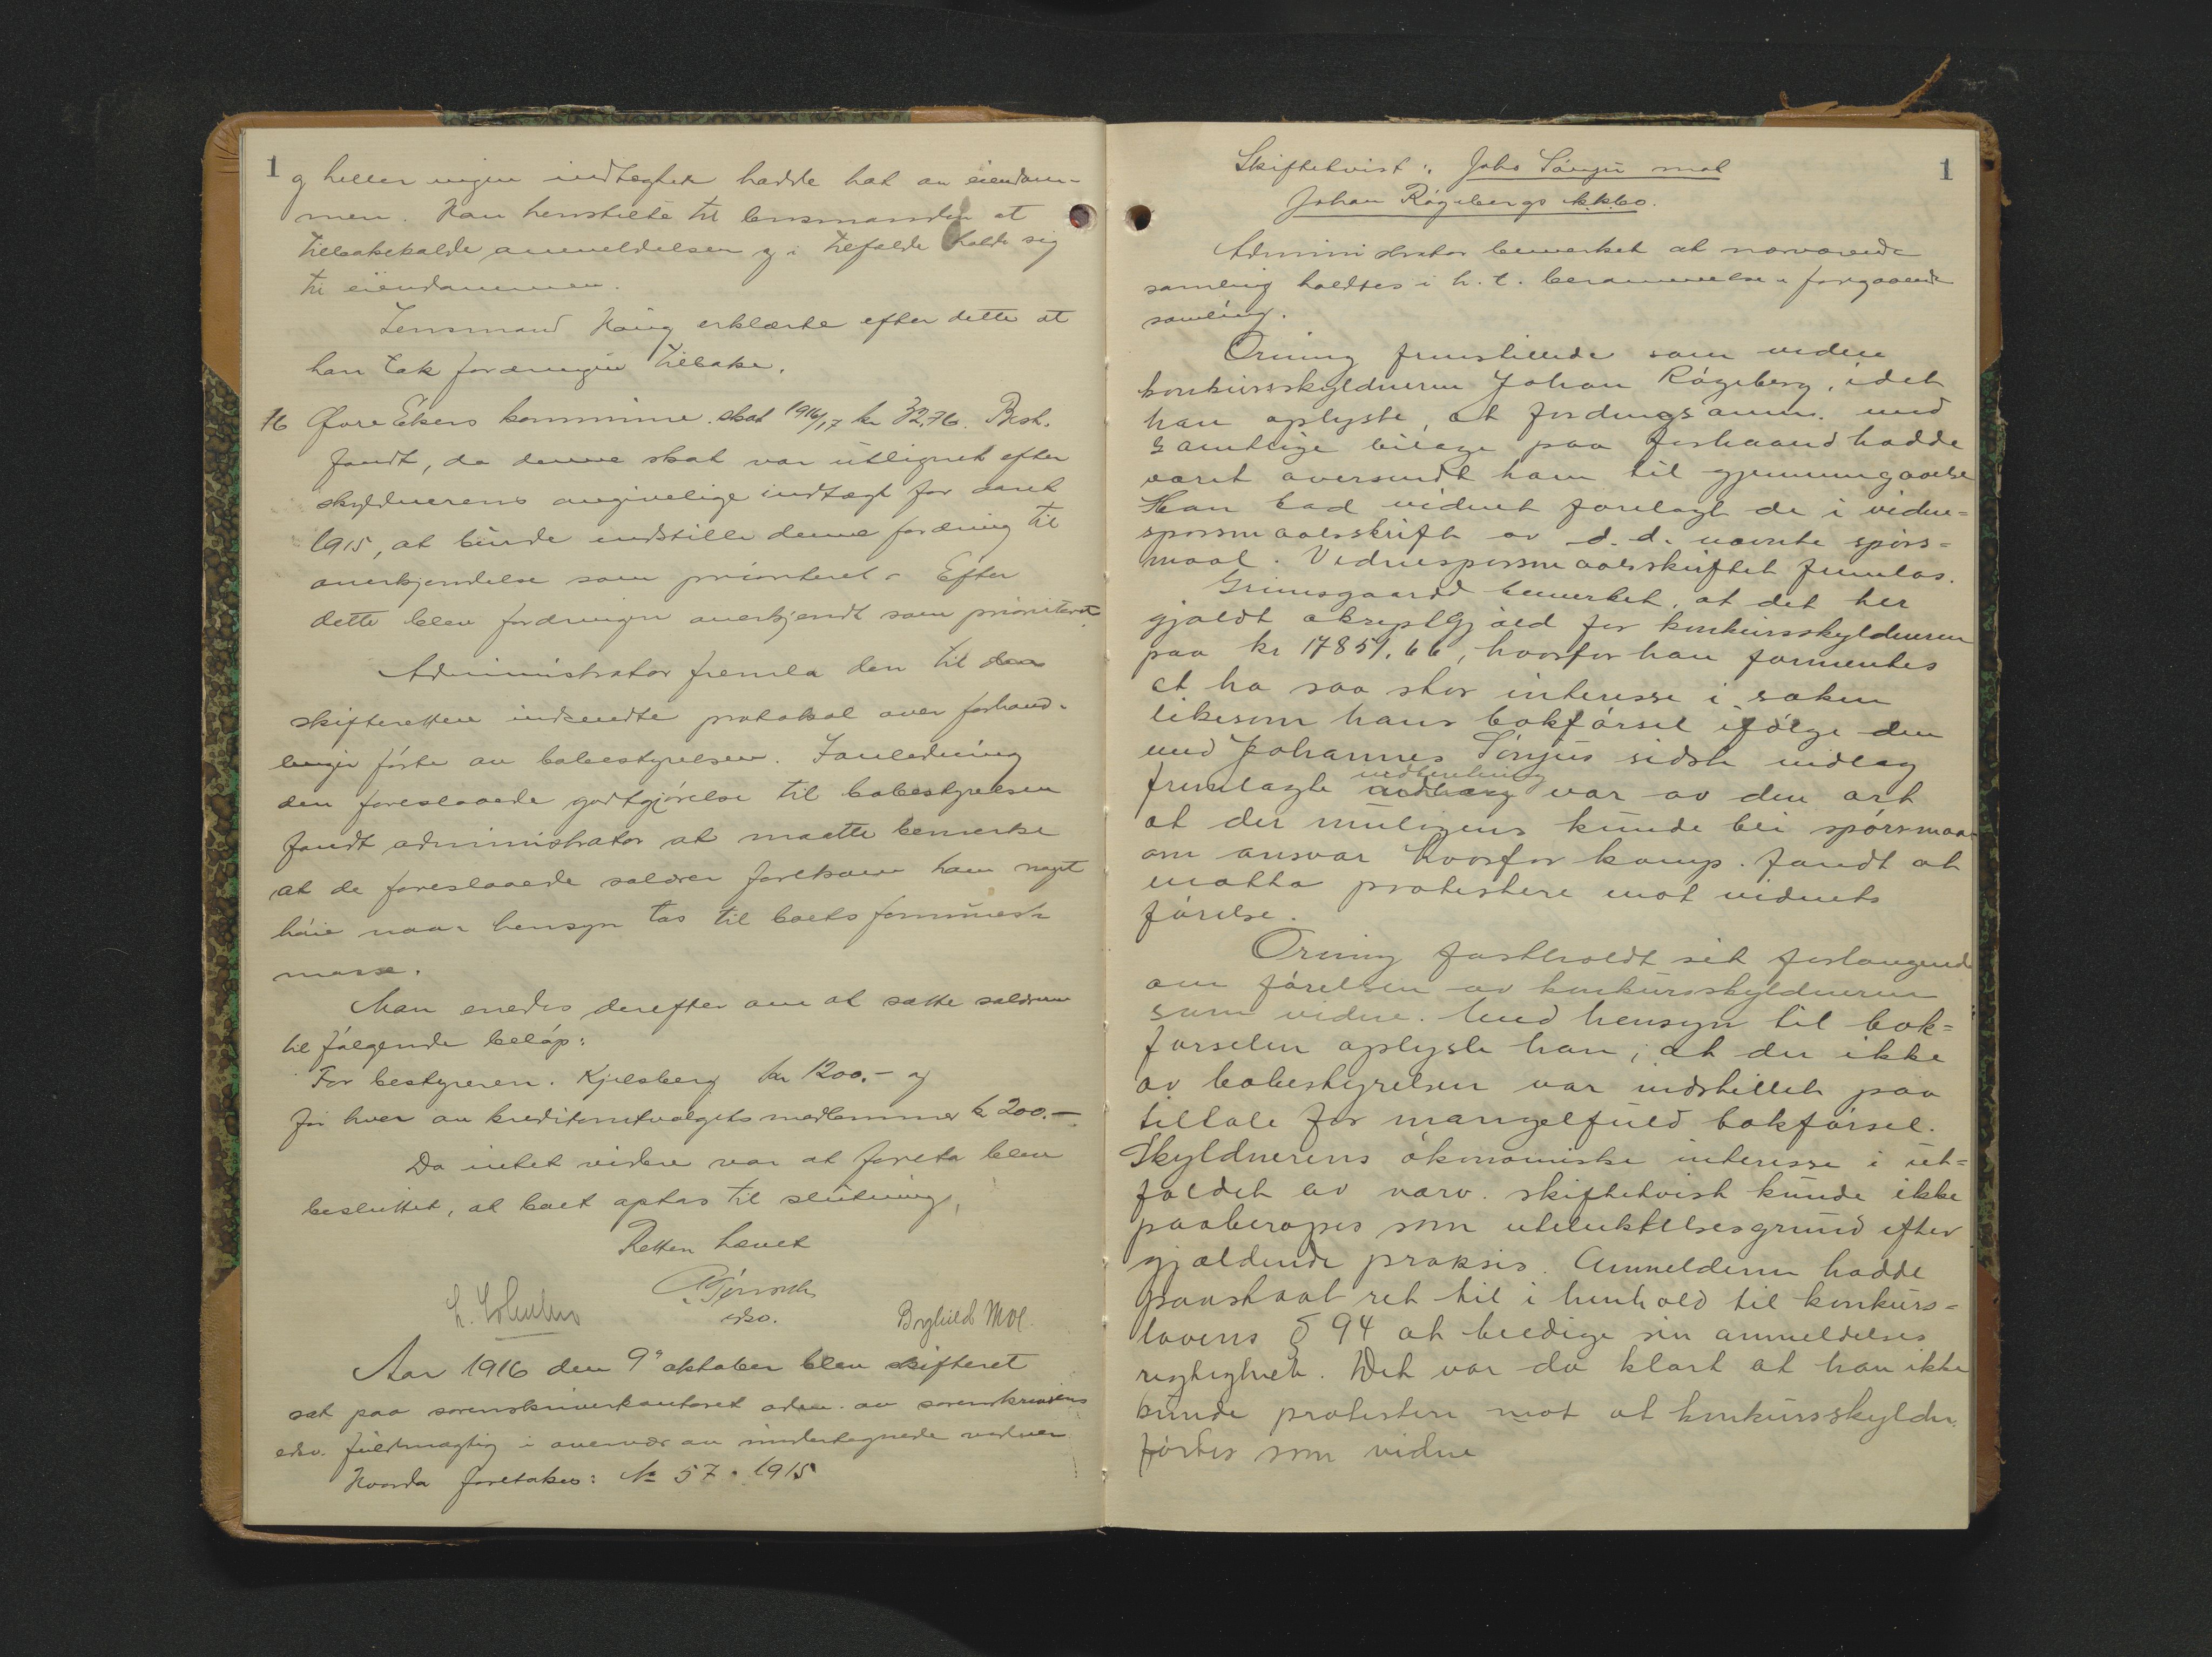 1
og heller ingen indtægter hadde hat av eiendom-
men. Han henstilte til lensmanden at
tilbakekalde anmeldelsen og i tilfælde holde sig
til eiendommen.
Lensmand Haug erklærte efter dette at
han tok fordringen tilbake.
16 Øvre Ekers kommune. skat 1916/17 kr 32,76. Best.
fandt, da denne skat var utlignet efter
skyldnerens angivelige indtægt for aaret
1915, at burde indstille denne fordring til
anerkjendelse som prioritert. Efter
dette blev fordringen anerkjendt som prioritert.
Administrator fremla den til den
skifteretten indsendte protokol over forhand-
linger førte av bobestyrelsen. I anledning
den foreslaaede godtgjørelse til bobestyrelsen
fandt administrator at maatte bemerke
at de foreslaaede salærer forekom ham noget
høie naar hensyn tas til boets formues-
masse.
Man enedes derefter om at sætte salærene
til følgende beløp:
For bestyreren. Kjelsberg kr 1200.- og
for hver av kreditorutvalgets medlemmer kr 200.-
Da intet videre var at foreta blev
besluttet, at boet optas til slutning.
Retten hævet
edso.
Brghild Moe.
Aar 1916 den 9' oktober blev skifteret
sat paa sorenskriverkontoret adm. av sorenskriverens
edsv. fuldmægtig i overvær av undertegnede vidner
Hvorda foretokes: № 57. 1915
1
Skiftetvist: Johs Sønju mot
Johan Røgebergs k.k.bo.
Administrator bemerket at nærværende
samling holdtes i h. t. berammelse i foregaaende
samling.
Orning fremstillede som vidne
konkursskyldneren Johan Røgeberg, idet
han oplyste, at fordringsanm. med
samtlige bilage paa forhaand hadde
været oversendt ham til gjennemgaaelse
Han bad vidnet forelagt de i vidne-
spørsmaalsskrift av d. d. nævnte spørs-
maal. Vidnespørsmaalsskriftet fremlaas.
Grimsgaard bemerket, at det her
gjældt akseptgjæld for konkursskyldneren
paa kr 17851.66, hvorfor han formentes
at ha saa stor interesse i saken
likesom hans bokførsel ifølge den
med Johannes Sønjus sidste indlæg
fremlagte var av den art
at der muligens kunde bli spørsmaal
om ansvar hvorfor komp. fandt at
maatte protestere mot vidnets
førelse.
Orning fastholdt sit forlangende
om førelsen av konkursskyldneren
som vidne. Med hensyn til bok=
førselen oplyste han, at der ikke
av bobestyrelsen var indstillet paa
tiltale for mangelfuld bokførsel.
Skyldnerens økonomiske interesse i ut=
faldet av nærv. skiftetvist kunde ikke
paaberopes som utelukkelsesgrund efter
gjældende praksis. Anmelderen hadde
paastaat ret til i henhold til konkurs=
lovens § 94 at beedige sin anmeldelses
rigtighet. Det var da klart at han ikke
kunde protestere mot at konkursskyldn.
førtes som vidne